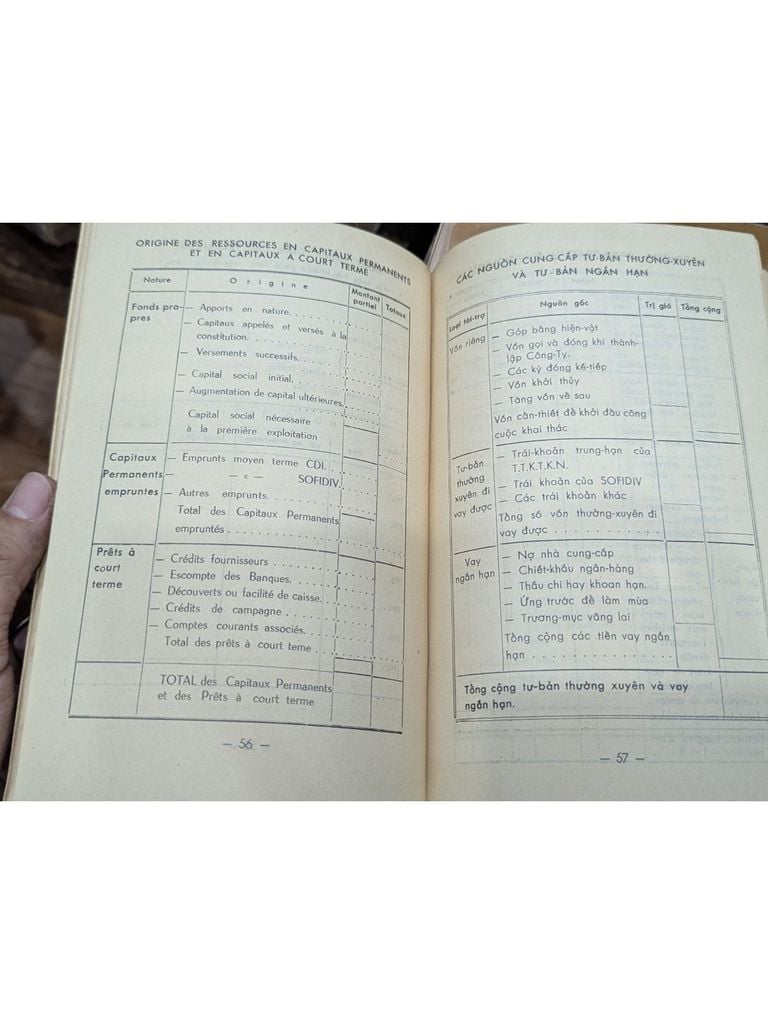 ORIGINE DES RESSOURCES EN CAPITAUX PERMANENTS
ET EN CAPITAUX A COURT TERME
Nature
Origine
Montant partiel
Totaux
Fonds pro-
pres
— Apports en nature.
— Capitaux appelés et versés à la
constitution.
— Versements successifs.
— Capital social initial.
— Augmentation de capital ultérieures.
Capital social nécessaire
à la première exploitation
Capitaux
Permanents
empruntes
— Emprunts moyen terme CDI.
— — « — SOFIDIV.
— Autres emprunts.
Total des Capitaux Permanents
empruntés
Prêts à
court
terme
— Crédits fournisseurs
— Escompte des Banques.
— Découverts ou facilité de caisse.
— Crédits de campagne
— Comptes courants associés.
Total des prêts à court teme
TOTAL des Capitaux Permanents
et des Prêts à court terme
— 56 —
CÁC NGUỒN CUNG-CẤP TƯ-BẢN THƯỜNG-XUYÊN
VÀ TƯ-BẢN NGẮN HẠN
Loại tài-trợ
Nguồn gốc
Trị giá
Tổng cộng
Vốn riêng
— Góp bằng hiện-vật
— Vốn gọi và đóng khi thành-
lập Công-Ty.
— Các kỳ đóng kế-tiếp
— Vốn khởi thủy
— Tăng vốn về sau
Vốn cần-thiết để khởi đầu công
cuộc khai thác
Tư-bản
thường
xuyên đi
vay được
— Trái-khoản trung-hạn của
T.T.K.T.K.N.
— Trái khoản của SOFIDIV
— Các trái khoản khác
Tổng số vốn thường-xuyên đi
vay được
Vay
ngắn hạn
— Nợ nhà cung-cấp
— Chiết-khấu ngân-hàng
— Thấu chi hay khoan hạn.
— Ứng trước để làm mùa
— Trương-mục vãng lai
Tổng cộng các tiền vay ngắn
hạn
Tổng cộng tư-bản thường xuyên và vay
ngắn hạn.
— 57 —